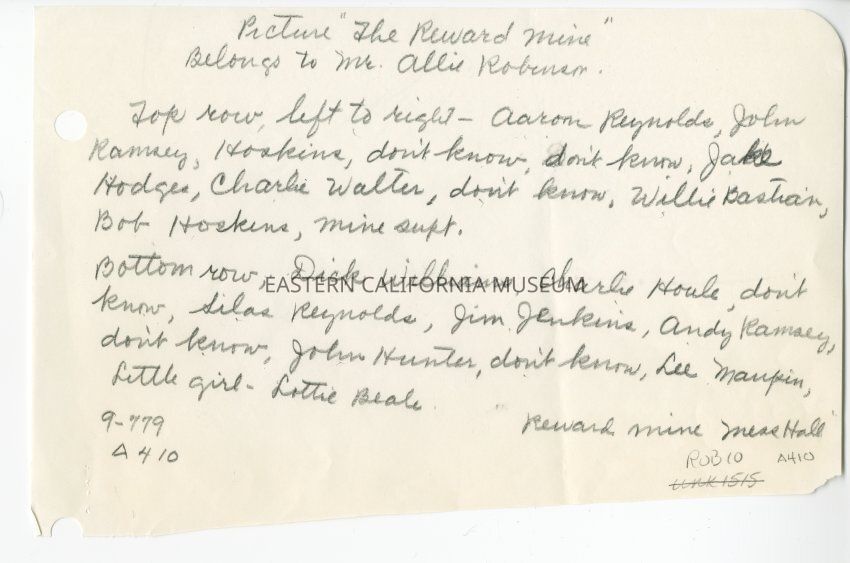 Picture "The Reward Mine"
Belongs to Mr. Allie Robinson.
Top row, left to right - Aaron Reynolds, John
Ramsey, Hoskins, don't know, don't know, Jake
Hodges, Charlie Walter, don't know, Willie Bastian,
Bob Hoskins, mine supt.
Bottom row, Dick Charlie Houle, don't
EASTERN CALIFORNIA MUSEUM
know, Silas Reynolds, Jim Jenkins, Andy Ramsey,
don't know, John Hunter, don't know, Lee Maupin,
Little girl - Lottie Beale.
9-779
Reward mine "Mess Hall"
A410
ROB10 A410
UNK1515